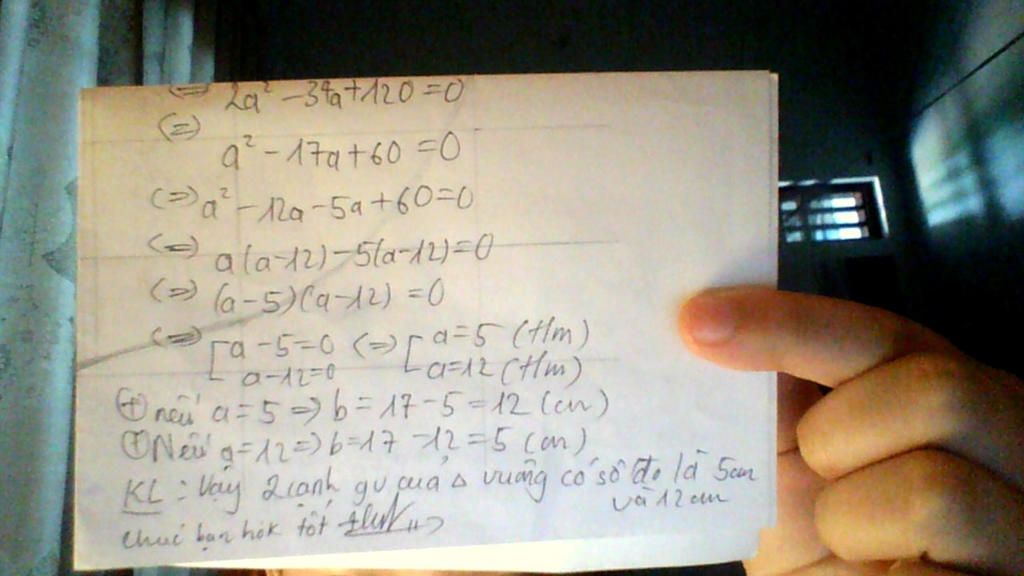 (=) 2a² - 34a + 120 = 0
(=)
a² - 17a + 60 = 0
(=) a² - 12a - 5a + 60 = 0
(=) a(a-12) - 5(a-12) = 0
(=) (a-5)(a-12) = 0
(=) [a - 5 = 0 (=) [a = 5 (t/m)
a - 12 = 0 a = 12 (t/m)
(+) nếu a = 5 => b = 17 - 5 = 12 (cm)
(+) Nếu a = 12 => b = 17 - 12 = 5 (cm)
KL : Vậy 2 cạnh gv của Δ vuông có số đo là 5cm
và 12 cm
chúc bạn hok tốt